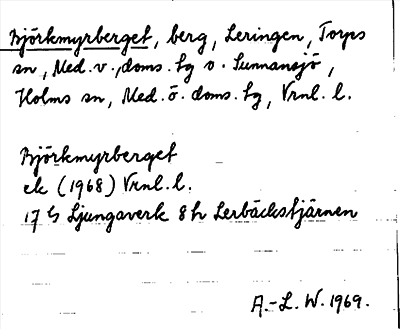 Björkmyrberget, berg, Leringen, Torps
sn, Med. v. doms. tg o. Sunnansjö,
Holms sn, Med. ö. doms. tg, Vrnl. l.
Björkmyrberget
ek (1968) Vrnl. l.
17 G Ljungaverk 8 h Lerbäckstjärnen
A.-L. W. 1969.